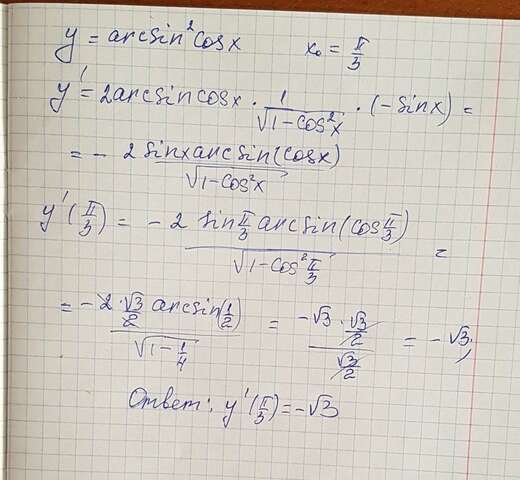 y = arcsin²cosx   x₀ = π/3
y' = 2arcsincosx · 1/√(1-cos²x) · (-sinx) =
= - 2sinxarcsin(cosx)/√(1-cos²x)
y'(π/3) = -2 sin π/3 arcsin(cos π/3)/√(1-cos² π/3) =
= -2·√3/2 arcsin(1/2)/√(1-1/4) = -√3 · √3/2 / √3/2 = -√3;
Ответ: y'(π/3) = -√3